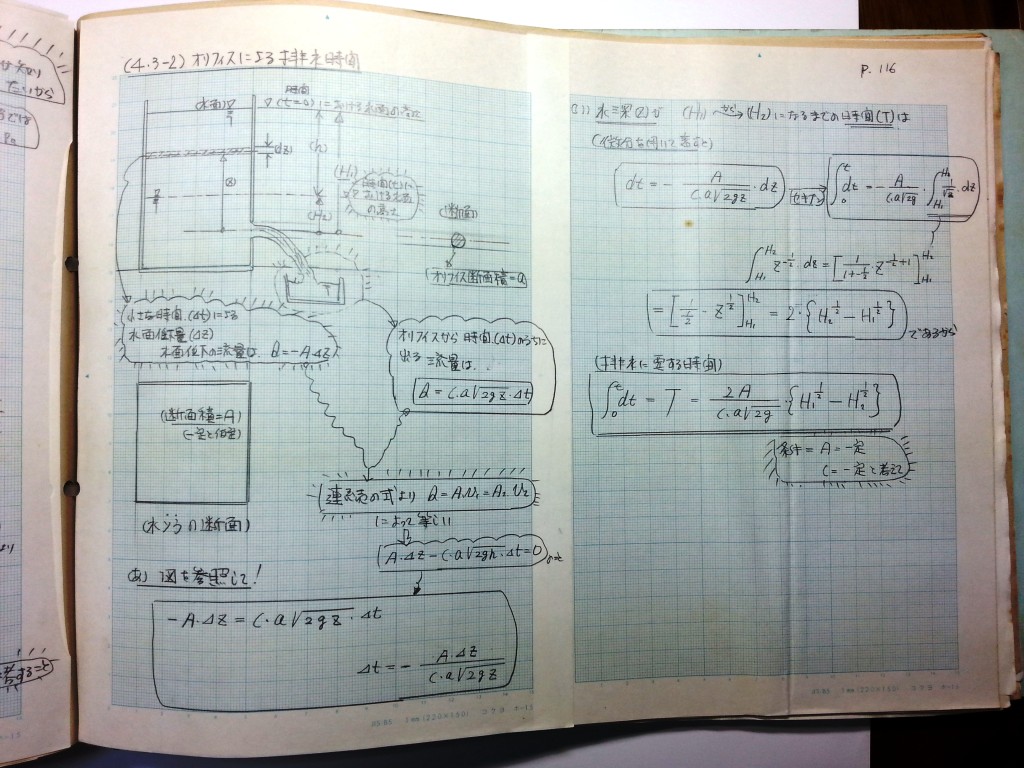 (4.3-2) オリフィスによる排水時間
水面
時間
(t=0)における水面の高さ
(dz)
(h)
(z)
(H1)
時間(t)に
おける水面
の高さ
(H2)
(断面)
(オリフィス断面積=a)
小さな時間(Δt)による
水面低下量(ΔZ)
水面低下の流量は Q=-A・ΔZ
オリフィスから時間(Δt)のうちに
出る流量は...
Q = C・a√2gz・Δt
(断面積=A)
(一定と仮定)
(水そうの断面)
連続の式より Q=A1・V1=A2・V2
によって等しい
A・ΔZ-C・a√2gh・Δt=0
(あ) 図を参照して!
-A・ΔZ = C・a√2gz・Δt
Δt = - A・ΔZ / C・a√2gz
P. 116
水深(Z)が (H1) から (H2)になるまでの時間(T)は
(微積分を用いて表すと)
dt = - A / C・a√2gz ・dz
∫0^t dt = - A / C・a√2g ・∫H1^H2 1/√z・dz
∫H1^H2 z^-1/2・dz = [1/(1+-1/2) z^-1/2+1]H1^H2
= [1/(1/2)・z^1/2]H1^H2 = 2・{H2^1/2 - H1^1/2}
であるから
(排水に要する時間)
∫0^t dt = T = 2A / C・a√2g ・{H1^1/2 - H2^1/2}
条件= A=一定
C=一定と考えて
A5-B5 1mm(220×150) コクヨ ホ-13